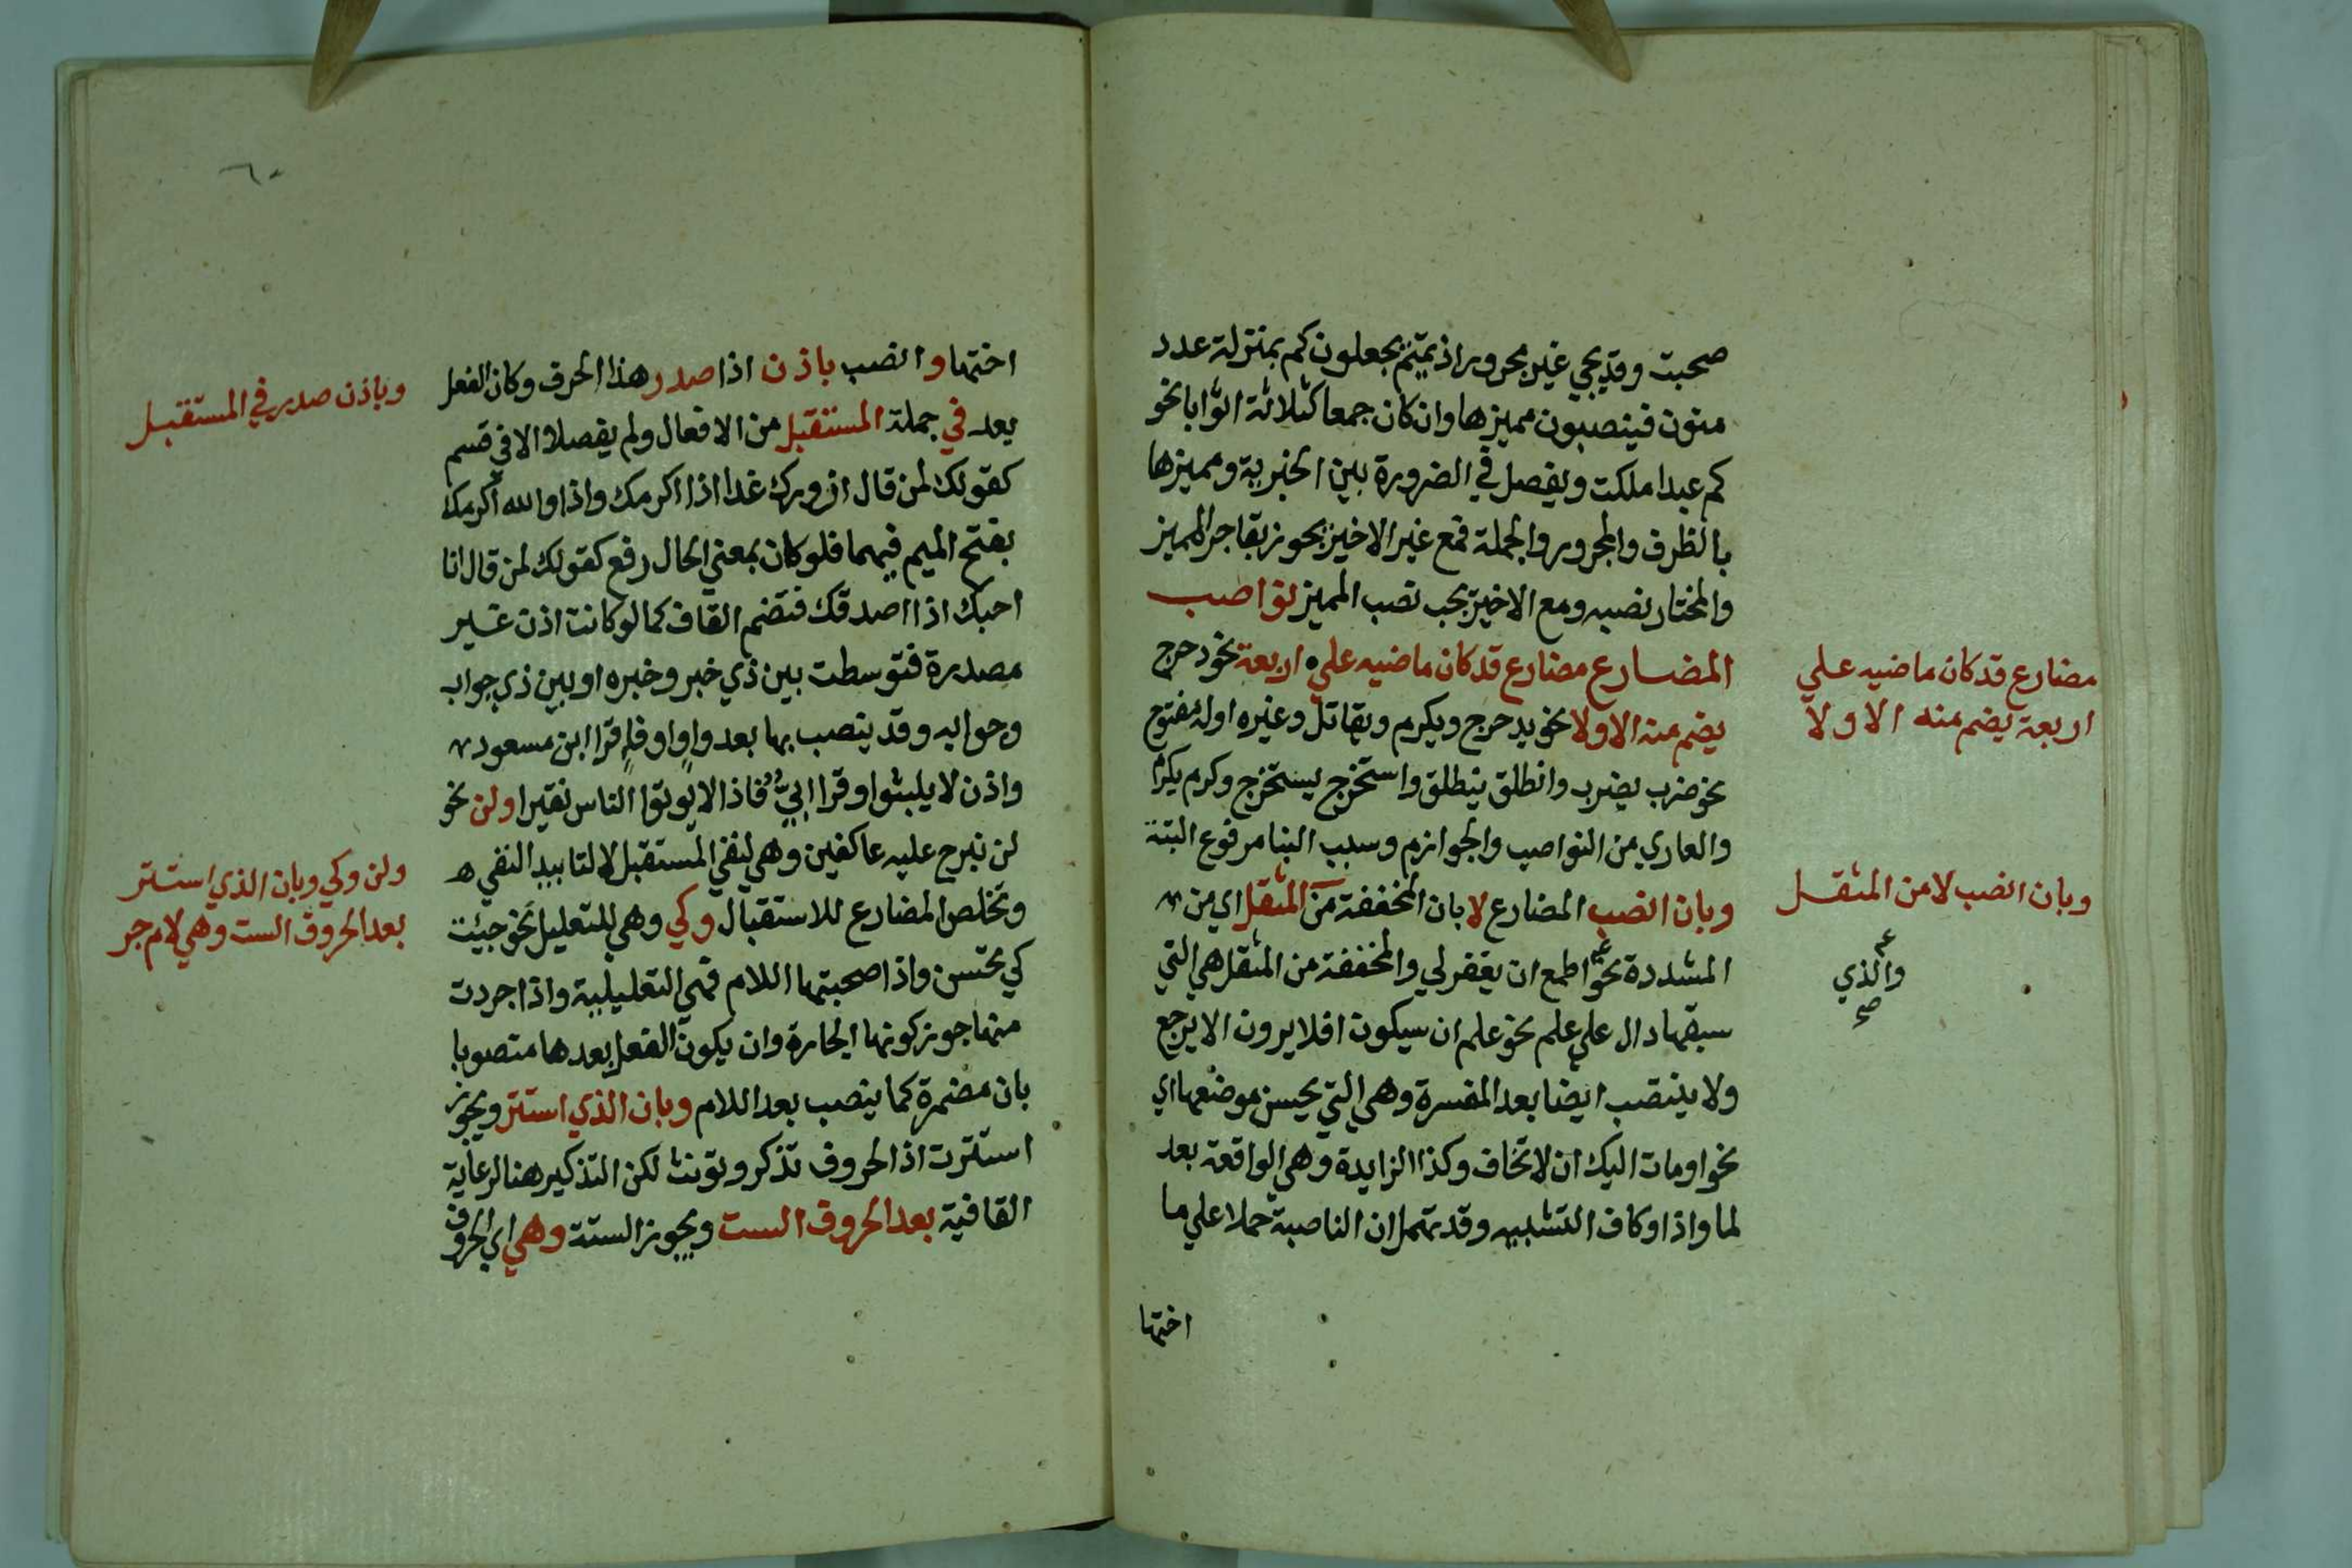 صحبت وقد يجي غير مجرور اذ تميم يجعلون كم بمنزلة عدد
منون فينصبون مميزها وان كان جمعا كثلاثة اثوابا نحو
كم عبدا ملكت ويفصل في الضرورة بين الخبرية ومميزها
بالظرف والمجرور والجملة فمع غير الاخير يجوز بقا جر المميز
والمختار نصبه ومع الاخير يجب نصب المميز نواصب
المضارع مضارع قد كان ماضيه علي اربعة نحو دحرج
يضم منه الاولا نحو يدحرج ويكرم ويقاتل وغيره اوله مفتوح
نحو ضرب يضرب وانطلق ينطلق واستخرج يستخرج وكرم يكرم
والعاري من النواصب والجوازم وسبب البنا مرفوع البتة
وبان انصب المضارع لا بان المخففة من المثقل اي من
المشددة نحو اطمع ان يغفر لي والمخففة من المثقل هي التي
سبقها دال علي علم نحو علم ان سيكون افلا يرون الا يرجع
ولا ينتصب ايضا بعد المفسرة وهي التي يحسن موضعها اي
نحو اومات اليك ان لا تخاف وكذا الزايدة وهي الواقعة بعد
لما واذا وكاف التشبيه وقد تهمل ان الناصبة حملا علي ما
اختها
مضارع قد كان ماضيه علي
اربعة يضم منه الاولا
وبان انصب لا من المثقل
والذي
صح
٦٠
اختها وانصب باذن اذا صدر هذا الحرف وكان الفعل
يعد في جملة المستقبل من الافعال ولم يفصلا الا في قسم
كقولك لمن قال ازورك غدا اذا اكرمك واذا والله اكرمك
بفتح الميم فيهما فلو كان بمعني الحال رفع كقولك لمن قال انا
احبك اذا اصدقك فتضم القاف كما لو كانت اذن غير
مصدرة فتوسطت بين ذي خبر وخبره او بين ذي جواب
وجوابه وقد ينصب بها بعد واو او فا قرا ابن مسعود
واذن لا يلبثوا وقرا ابي فاذا لا يوتوا الناس نقيرا ولن نحو
لن نبرح عليه عاكفين وهي لنفي المستقبل لا لتابيد النفي
وتخلص المضارع للاستقبال وكي وهي للتعليل نحو جيئت
كي تحسن واذا صحبتها اللام فهي التعليلية واذا جردت
منها جوز كونها الجارة وان يكون الفعل بعدها منصوبا
بان مضمرة كما ينصب بعد اللام وبان الذي استتر ويجوز
استترت اذ الحروف تذكر وتونث لكن التذكير هنا لرعاية
القافية بعد الحروف الست ويجوز الستة وهي اي الحروف
وباذن صدر في المستقبل
ولن وكي وبان الذي استتر
بعد الحروف الست وهي لام جر